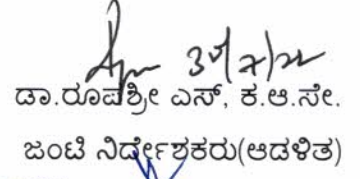 30/7/22
ಡಾ.ರೂಪಶ್ರೀ ಎಸ್, ಕ.ಆ.ಸೇ.
ಜಂಟಿ ನಿರ್ದೇಶಕರು(ಆಡಳಿತ)